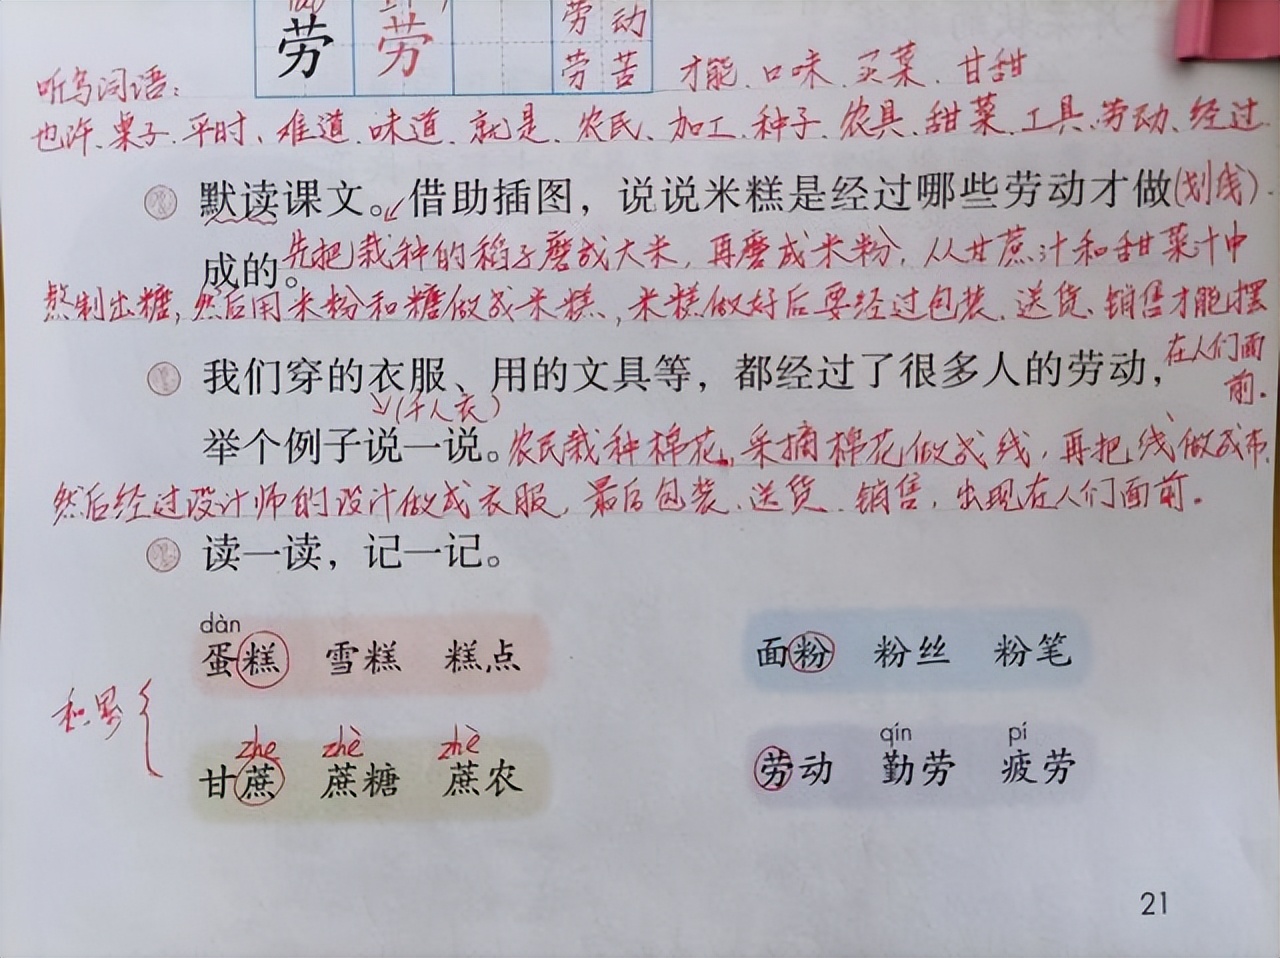 劳 劳 劳动
劳苦 才能、口味、买菜、甘甜
听写词语：
也许、桌子、平时、难道、味道、就是、农民、加工、种子、农具、甜菜、工具、劳动、经过
默读课文。借助插图，说说米糕是经过哪些劳动才做(划线)
成的。先把栽种的稻子磨成大米，再磨成米粉，从甘蔗汁和甜菜汁中
熬制出糖，然后用米粉和糖做成米糕，米糕做好后要经过包装、送货、销售才能摆
在人们面
前。
我们穿的衣服、用的文具等，都经过了很多人的劳动，
(千人衣)
举个例子说一说。农民栽种棉花，采摘棉花做成线，再把线做成布，
然后经过设计师的设计做成衣服，最后包装、送货、销售，出现在人们面前。
读一读，记一记。
dàn
蛋糕 雪糕 糕点 面粉 粉丝 粉笔
积累
zhe zhè zhè qín pí
甘蔗 蔗糖 蔗农 劳动 勤劳 疲劳
21